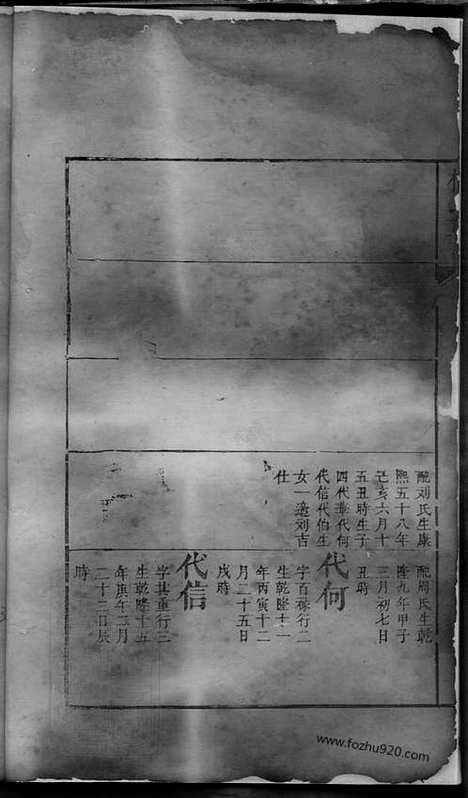 配刘氏生康
熙五十八年
己亥六月十
五丑時生子
四代羣代何
代信代伯生
女一適刘吉
仕
配周氏生乾
隆九年甲子
三月初七日
丑時
代何
字百祿行二
生乾隆十一
年丙寅十二
月二十五日
戌時
代信
字其重行三
生乾隆十五
年庚午二月
二十二日辰
時
www.fozhu920.com